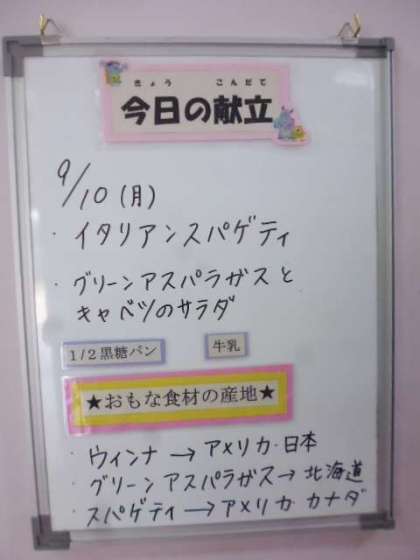 きょう こんだて
今日の献立
9/10(月)
・イタリアンスパゲティ
・グリーンアスパラガスと
キャベツのサラダ
1/2黒糖パン 牛乳
★おもな食材の産地★
・ウィンナ→アメリカ・日本
・グリーンアスパラガス→北海道
・スパゲティ→アメリカ・カナダ